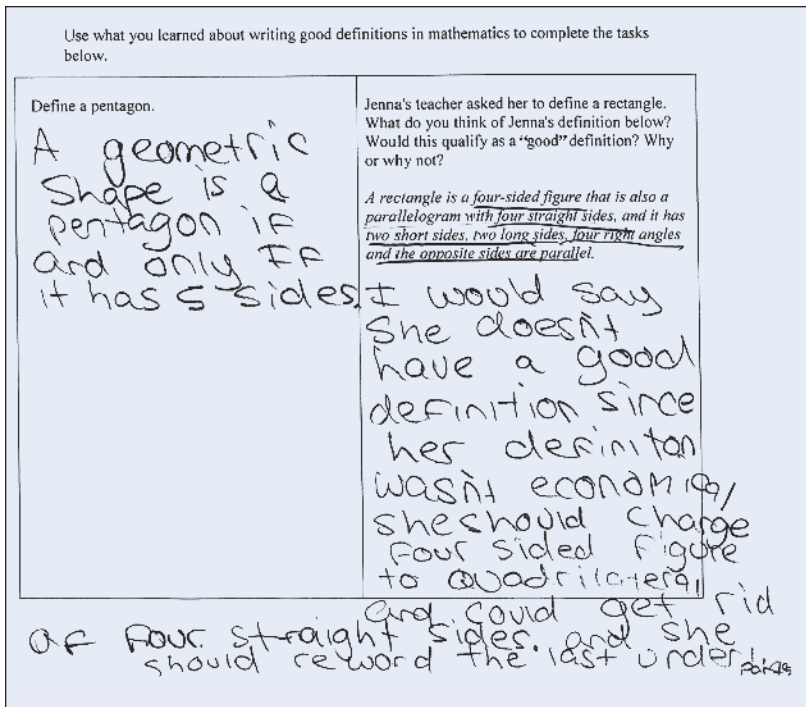 Use what you learned about writing good definitions in mathematics to complete the tasks
below.
Define a pentagon.
A geometric
Shape is a
pentagon if
and only IF
it has 5 sides.
Jenna's teacher asked her to define a rectangle.
What do you think of Jenna's definition below?
Would this qualify as a "good" definition? Why
or why not?
A rectangle is a four-sided figure that is also a
parallelogram with four straight sides, and it has
two short sides, two long sides, four right angles
and the opposite sides are parallel.
I would say
She doesn't
have a good
definition since
her definiton
wasn't economical
she should change
Four sided figure
to quadrilateral
and could get rid
of four straight sides. and she
should reword the last under